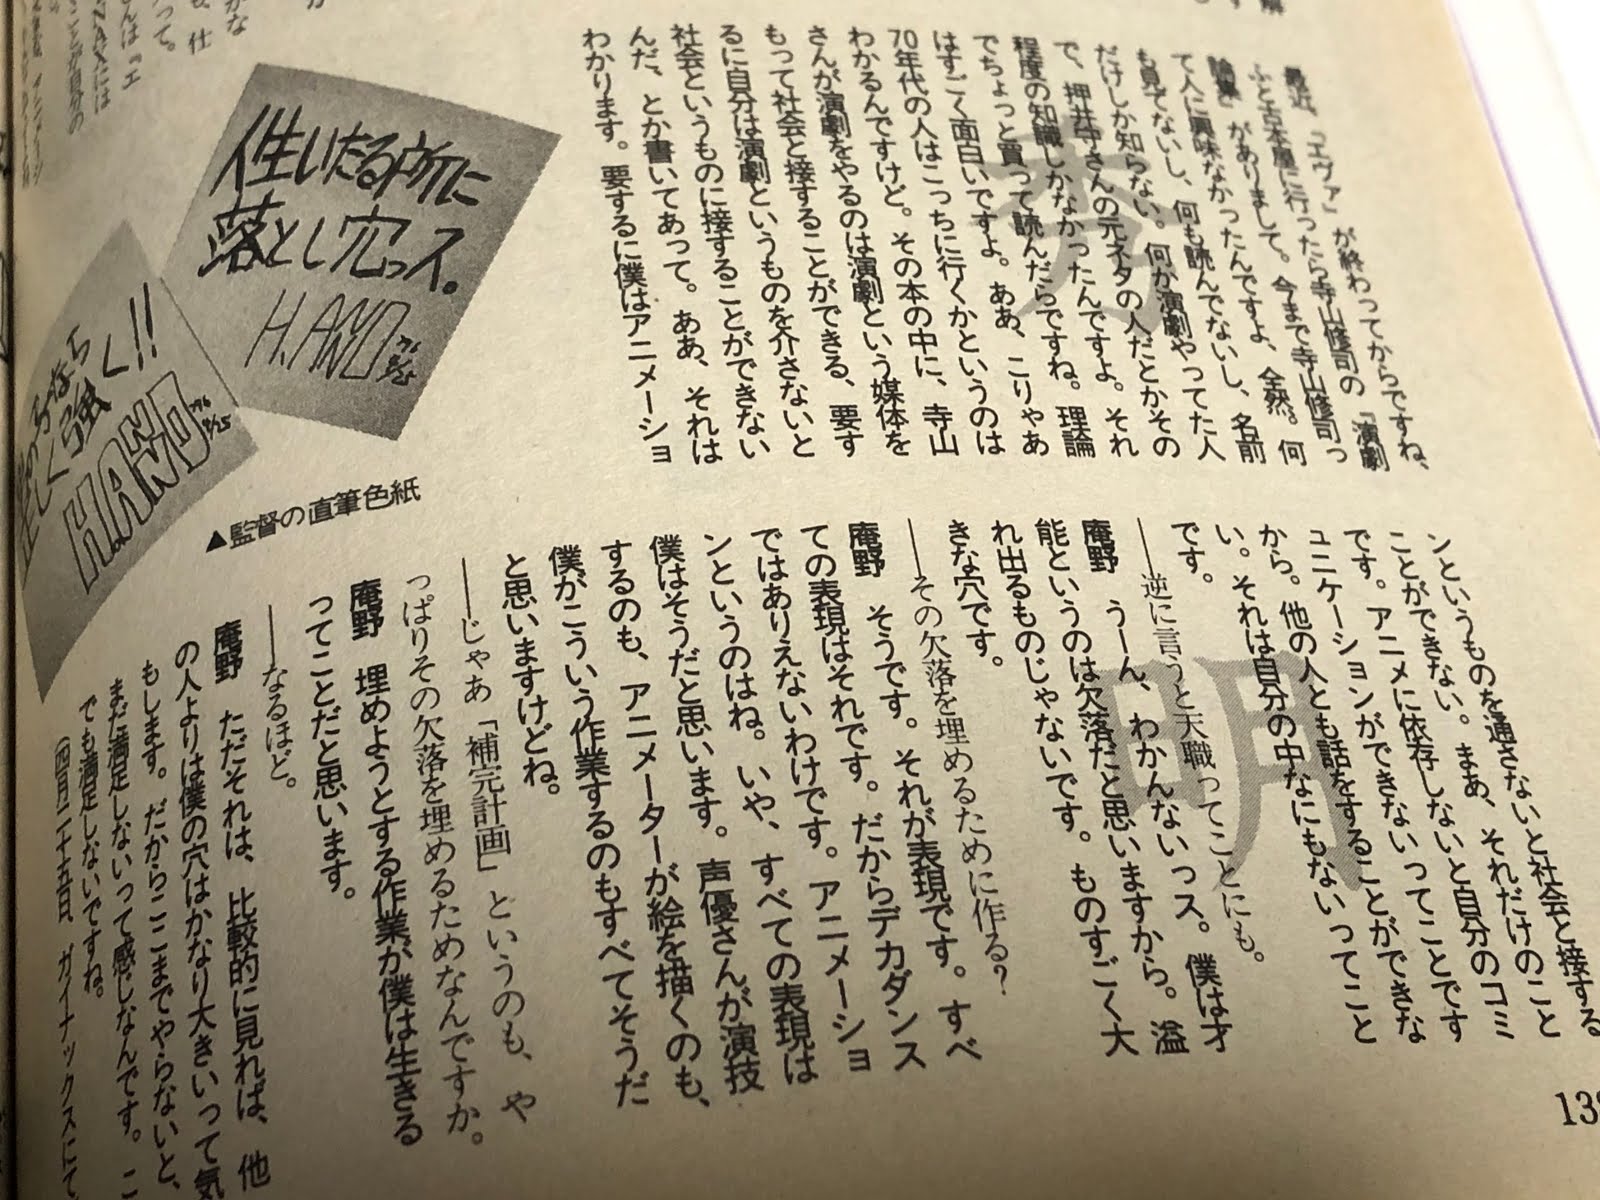 最近、『エヴァ』が終わってからですね、
ふと古本屋に行ったら寺山修司の『演劇
論集』がありまして。今まで寺山修司っ
て人に興味なかったんですよ、全然。何
も見てないし、何も読んでないし、名前
だけしか知らない。何か演劇やってた人
で、押井守さんの元ネタの人だとかその
程度の知識しかなかったんですよ。それ
でちょっと買って読んだらですね。理論
はすごく面白いですよ。ああ、こりゃあ
70年代の人はこっちに行くかというのは
わかるんですけど。その本の中に、寺山
さんが演劇をやるのは演劇という媒体を
もって社会と接することができる、要す
るに自分は演劇というものを介さないと
社会というものに接することができない
んだ、とか書いてあって。ああ、それは
わかります。要するに僕はアニメーショ
ンというものを通さないと社会と接する
ことができない。まあ、それだけのこと
です。アニメに依存しないと自分のコミ
ュニケーションができないってことです
から。他の人とも話をすることができな
い。それは自分の中なにもないってこと
です。
――逆に言うと天職ってことにも。
庵野　うーん、わかんないっス。僕は才
能というのは欠落だと思いますから。溢
れ出るものじゃないです。ものすごく大
きな穴です。
――その欠落を埋めるために作る？
庵野　そうです。それが表現です。すべ
ての表現はそれです。だからデカダンス
ではありえないわけです。アニメーショ
ンというのはね。いや、すべての表現は
僕はそうだと思います。声優さんが演技
するのも、アニメーターが絵を描くのも、
僕がこういう作業するのもすべてそうだ
と思いますけどね。
――じゃあ「補完計画」というのも、や
っぱりその欠落を埋めるためなんですか。
庵野　埋めようとする作業が僕は生きる
ってことだと思います。
――なるほど。
庵野　ただそれは、比較的に見れば、他
の人よりは僕の穴はかなり大きいって気
もします。だからここまでやらないと、
まだ満足しないって感じなんです。こ
でも満足しないですね。
（四月二十五日　ガイナックスにて
明
人生いたる所に
落とし穴っス。
H.ANO
▲監督の直筆色紙
強く!!
H.ANO